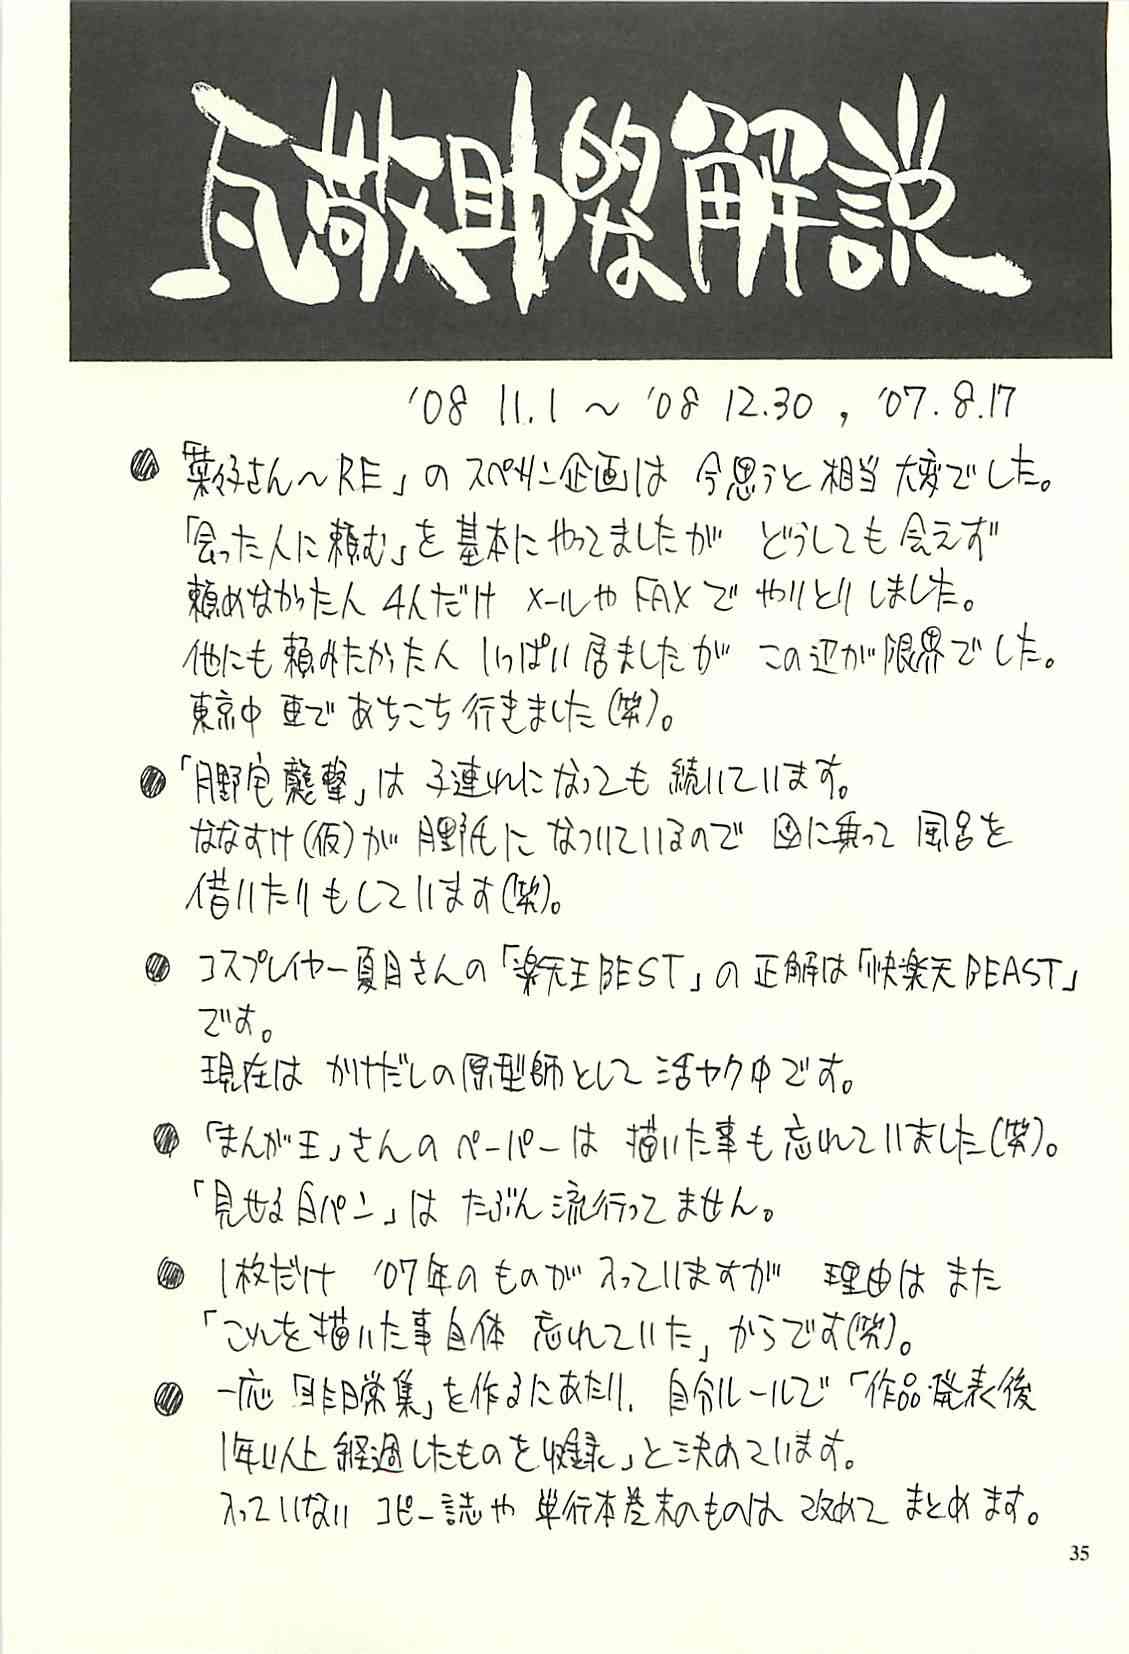 瓦敬助的な解説
'08 11.1 ～ '08 12.30 , '07.8.17
● 「菜々子さん～RE」の スペサン企画は 今思うと 相当 大変でした。
「会った人に頼む」を 基本に やってましたが どうしても 会えず
頼めなかった人 4人だけ メールや FAXで やりとり しました。
他にも 頼みたかった人 いっぱい 居ましたが この辺が 限界でした。
東京中 車で あちこち 行きました(笑)。
● 「月野宅 襲撃」は 子連れになっても 続いています。
ななすけ(仮)が 月野氏に なついているので 図に乗って 風呂を
借りたりもしています(笑)。
● コスプレイヤー夏月さんの「楽天王BEST」の 正解は「快楽天BEAST」
です。
現在は かけだしの 原型師として 活ヤク中です。
● 「まんが王」さんの ペーパーは 描いた事も 忘れていました(笑)。
「見せる白パン」は たぶん 流行ってません。
● 1枚だけ '07年の ものが 入っていますが 理由は また
「これを描いた事自体 忘れていた」からです(笑)。
● 一応 「日常集」を 作るにあたり、自分ルールで 「作品発表後
1年以上 経過したものを 収録」と 決めています。
入っていない コピー誌や 単行本巻末のものは 改めて まとめます。
35